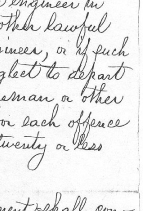 engineer in
other lawful
gineer, or if such
neglect to depart
eman or other
or each offence
twenty or less
ment shall